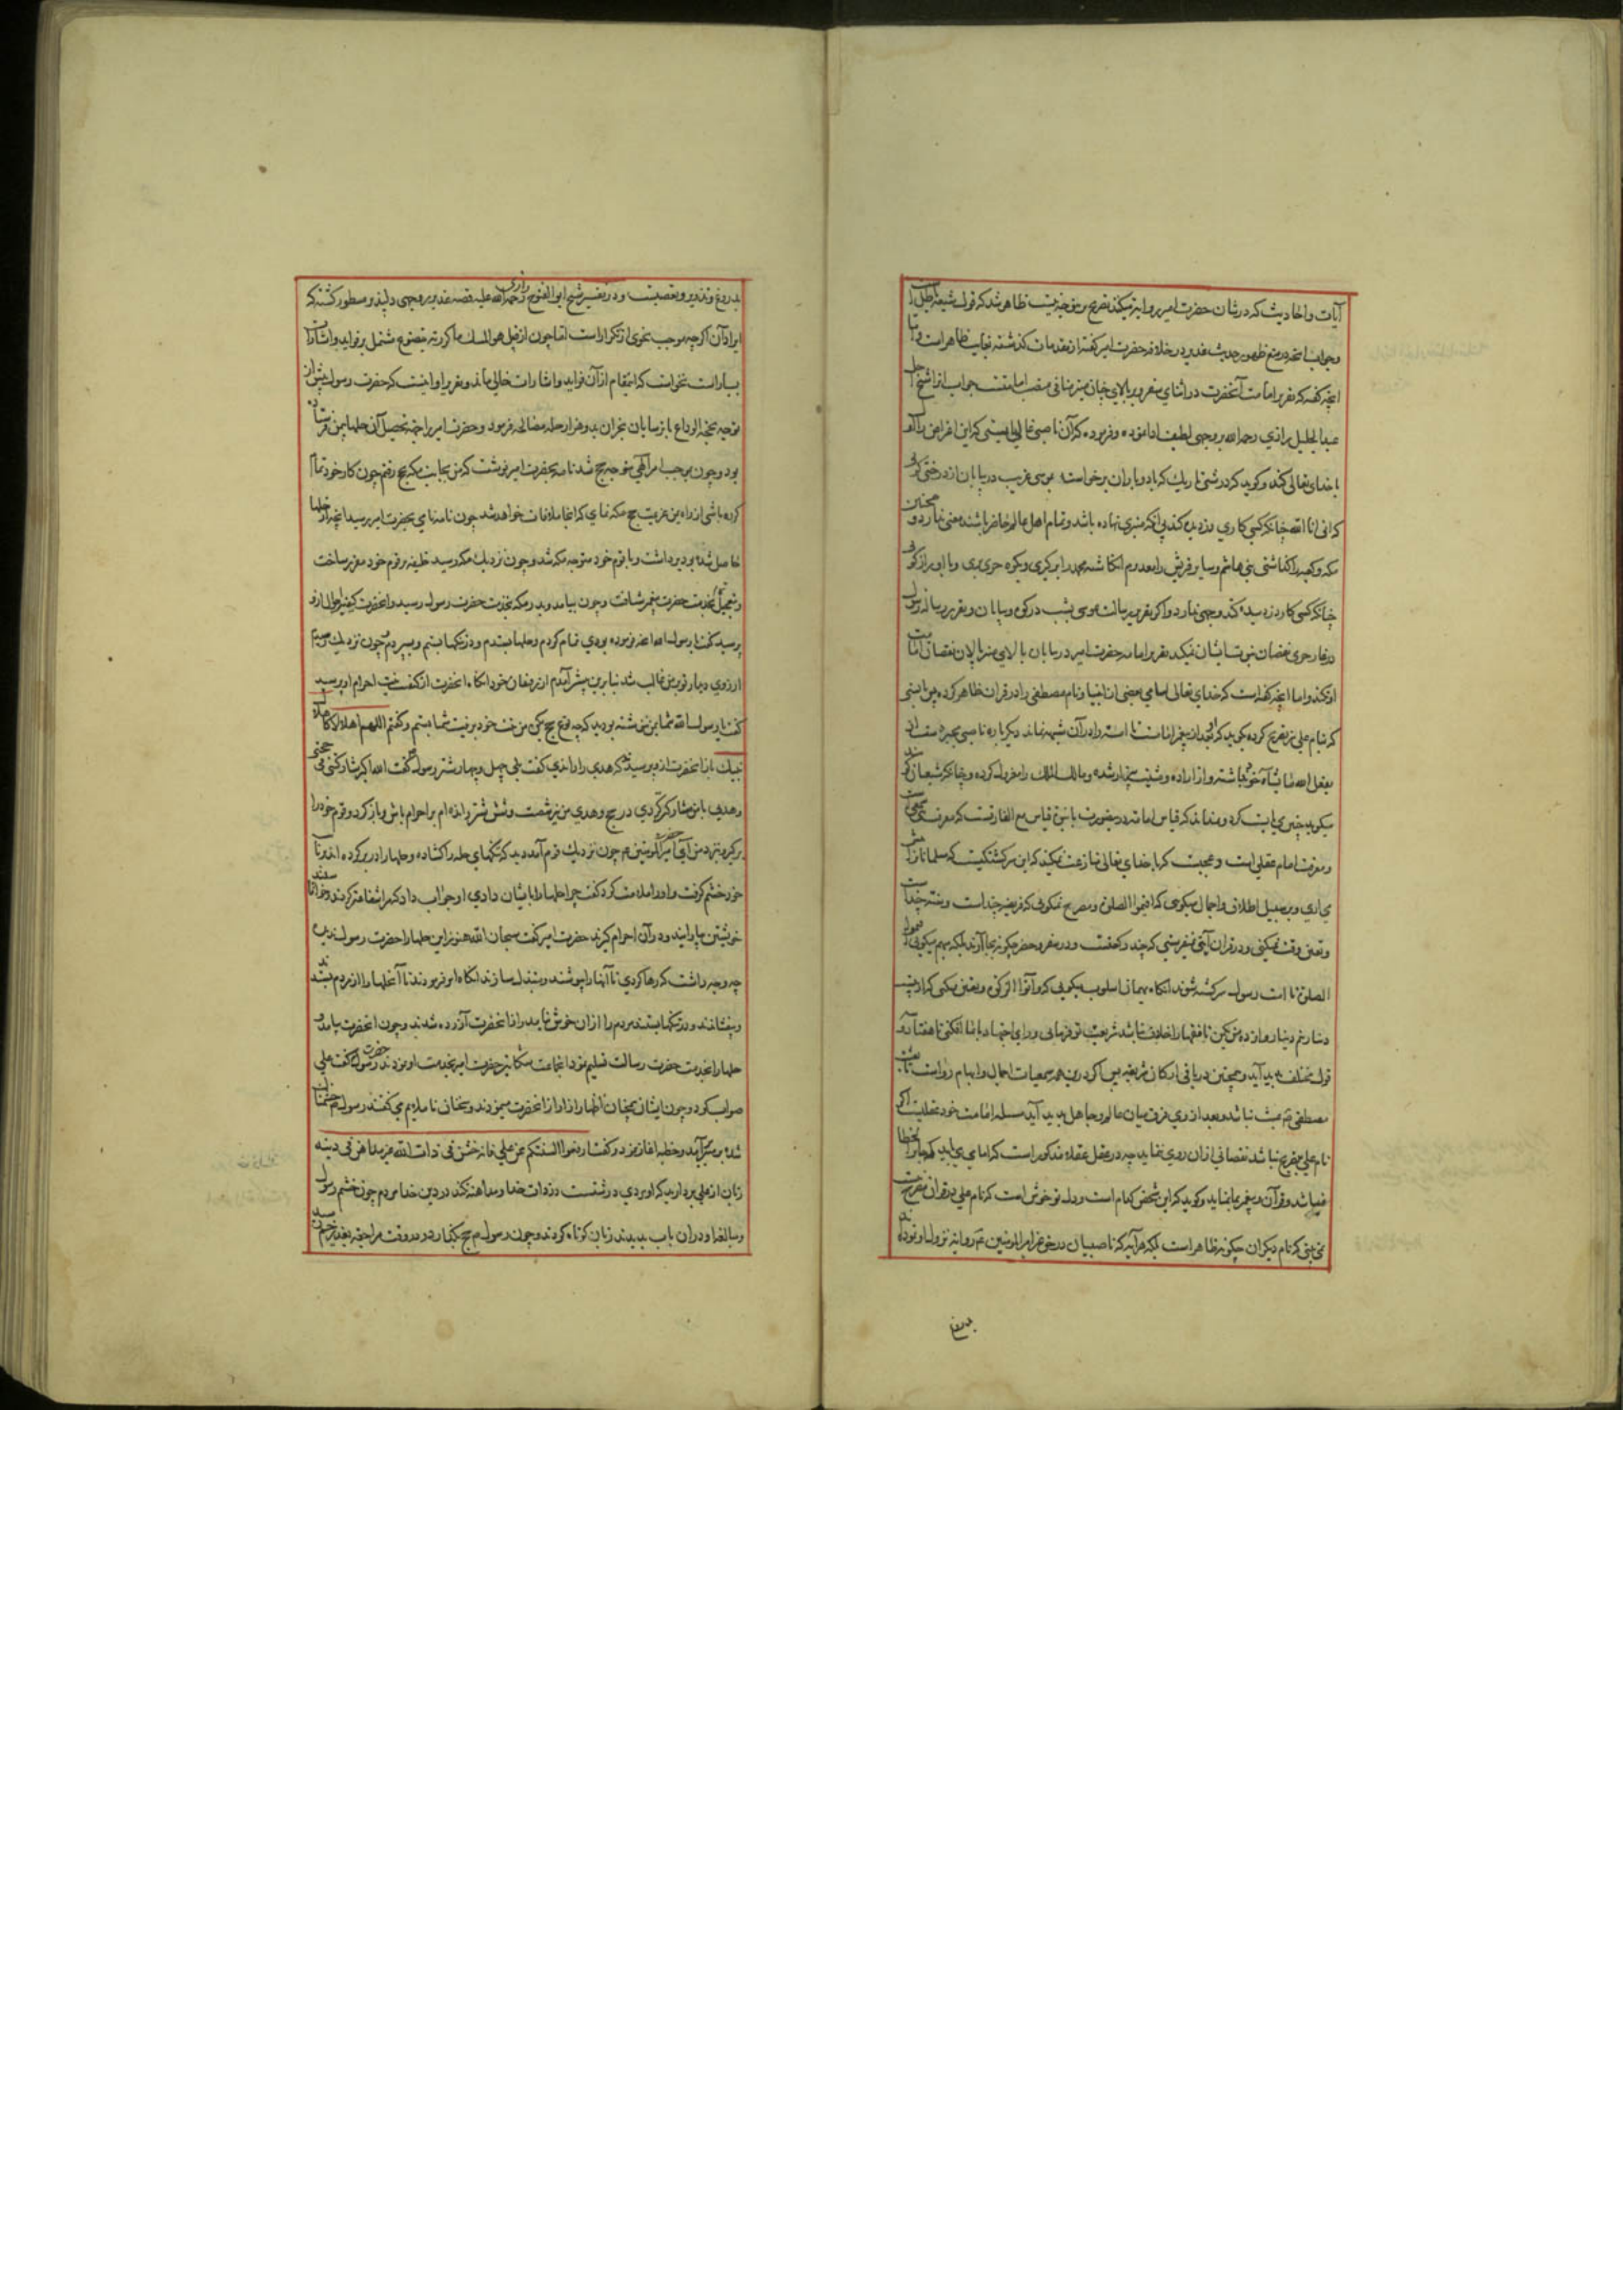 آیات و احادیث که در شان حضرت امیر روایت میکند تصریح و نوخیزیت ظاهر شد که قول شیعه باطل
و جواب آنچه در منع ظهور حدیث غدیر در خلافت حضرت امیر گفته از مقدمات گذشته بغایت ظاهر است و اما
آنچه گفته که تقریر امامت آنحضرت در اثنای سفر و بر بالای چنان منبر منافی منصب امامتست جواب از آن شیخ اجل
عبد الجلیل رازی رحمه الله بر وجهی لطیف ادا نموده و فرموده که آن ناصبی غالی بایستی که این اعتراض را اول
با خدای تعالی کند و گوید که در شبی تاریک که باد و باران برخاست موسی غریب در بیابان از درختی گوئی
که انی انا الله چنانکه کسی کاری دزدیده کند بی آنکه منبری نهاده باشد و تمام اهل عالم حاضر باشند معنی ندارد و همچنین
مکه و کعبه را گذاشتی بنی هاشم و سایر قریش را معدوم انگاشته محمد را برگیری و بکوه حری بری و با او راز گوئی
چنانکه کسی کار دزدیده کند وجهی ندارد و اگر تقریر رسالت موسی بشب در کوه و بیابان و تقریر رسالت رسول
در غار حری نقصان نبوت ایشان نمیکند تقریر امامت حضرت امیر در بیابان بالای منبر پالان نقصان امامت
او نکند و اما آنچه گفته است که خدای تعالی اسامی بعضی از انبیا و نام مصطفی را در قران ظاهر کرده پس بایستی
که نام علی نیز تصریح کرده
یفعل الله ما یشاء
میگوید چنین می بایست کرد و نداند که قیاس امامت درینصورت با نبوت قیاس مع الفارقست که معرفت
و معرفت امام عقلی است و عجبست که با خدای تعالی منازعت نمیکند که این سرگشتگیست که مسلمانان را
می آری و بر سبیل اطلاق و اجمال میگوئی که اقیموا الصلوة و مصرح نمیگوئی که فریضه چند است و سنت چند است
و تعیین وقت نمیکنی و در قران آیتی نمیفرستی که چند رکعتست و در سفر و حضر چگونه بجا آرند بلکه مبهم میگوئی اقیموا
الصلوة تا امت رسول سرگشته شوند آنگاه بهمان اسلوب میگوئی که و آتوا الزکوة و تعیین نمیکنی که از بیست
دینار نیم دینار و از ده من یکمن تا فقها را خلاف نباشد
قول مختلف پدید آید و همچنین در باقی ارکان شریعت پس اگر درین همه سمعیات اجمال و ابهام رواست تا
مصطفی مبین باشد و بعد از وی فرق میان عالم و جاهل پدید آید مسئله امامت خود عقلیست اگر
نام علی مصرح نباشد نقصانی از آن روی ننماید چه در عقل عقلا مذکور است که امامی می باید که جایز الخطا
نباشد و قرآن و پیغمبر بما نماید و گوید که این شخص کدام است و دلت تو خوش است که نام علی در قران مصرح
نمی بینی که نام دیگران چگونه ظاهر است بلکه هر آیه که ناصبیان در حق غیر امیر المؤمنین ع روایت نزول او نموده اند
بدروغ
بدروغ و تزویر و تعصبست و در تفسیر شیخ ابو الفتوح رازی رحمة الله علیه قصه غدیر بر وجهی دلپذیر مسطور گشته که
ایراد آن اگرچه موجب نحوی از تکرار است اما چون از قبیل هو المسک ما کررته یتضوع مشتمل بر فواید و اشارات
بسیار است نخواست که اینمقام از آن فواید و اشارات خالی ماند و تقریر او اینست که حضرت رسول پیش از
توجه بحجة الوداع با ترسایان نجران بدو هزار حله مصالحه فرمود و حضرت امیر را جهة تحصیل آن حلها بیمن فرستاده
بود و چون بموجب امر الهی متوجه حج شد نامه بحضرت امیر نوشت که من بجانب مکه بحج رفتم چون کار خود تمام
کرده باشی از راه یمن عزیمت حج مکه نمای که آنجا ملاقات خواهد شد چون نامه نامی بحضرت امیر رسید آنچه از حلها
حاصل شده بود برداشت و با قوم خود متوجه مکه شد و چون نزدیک مکه رسید خلیفه بر قوم خود مقرر ساخت
و بتعجیل بخدمت حضرت پیغمبر شتافت و چون بیامد و بدر مکه بخدمت حضرت رسول رسید و آنحضرت کیفیت احوال از او
پرسید گفت یا رسول الله آنچه فرموده بودی تمام کردم و حلها بستدم و در تنگها ببستم و بسپردم چون نزدیک رسیدم
آرزوی دیدار تو بر من غالب شد بنابرین پیشتر آمدم از رفیقان خود آنگاه آنحضرت از کیفیت احرام او پرسید
گفت یا رسول الله شما بمن ننوشته بودید که چه نوع حج میکنی من نیت خود بر نیت شما بستم و گفتم اللهم اهلالا کاهلال
نبیک باز آنحضرت از وی پرسید که هدی را راندی گفت بلی چهل و چهار شتر رسول گفت الله اکبر شارکتنی فی حجتی
و هدیی با من مشارکت کردی در حج و هدی من نیز شصت و شش شتر رانده ام بر احرام باش و باز گرد و قوم خود را
برگیر و نزد من آی حضرت امیر المؤمنین ع م چون نزدیک قوم آمد دید که تنگهای حله را گشاده و حلها را در بر کرده اند بر نایب
خود خشم گرفت و او را ملامت کرد که چرا حلها را بایشان دادی او جواب داد که مرا شفاعتگر کردند و خواستند تا
خویشتن بیارایند و در آن احرام گیرند حضرت امیر گفت سبحان الله هنوز این حلها را حضرت رسول ندیده
چه وجه داشت که رها کردی تا آنها را پوشند و مبتذل سازند آنگاه امر فرمودند تا آن حلها را از مردم بستدند
و بیفشاندند و در تنگها ببستند مردم را از آن خوش نیامد و از آنحضرت آزرده شدند و چون آنحضرت بیامد و
حلها را بخدمت حضرت رسالت تسلیم نمود آنجماعت شکایت حضرت امیر بخدمت او نمودند حضرت رسول گفت علی
صواب کرد و چون ایشان همچنان اظهار آزار از آنحضرت مینمودند و سخنان ناملایم می گفتند رسول م خشمناک
شده بر منبر آمد و خطبه آغاز نمود و گفت ارفعوا السنتکم عن علی فانه خشن فی ذات الله غیر مداهن فی دینه
زبان از علی بردارید که او مردی درشتست در ذات خدا و مداهنه نکند در دین خدا مردم چون خشم رسول
و مبالغه او در آن باب بدیدند زبان کوتاه کردند و چون رسول م حج بگذارد و در وقت مراجعت بغدیر خم رسید